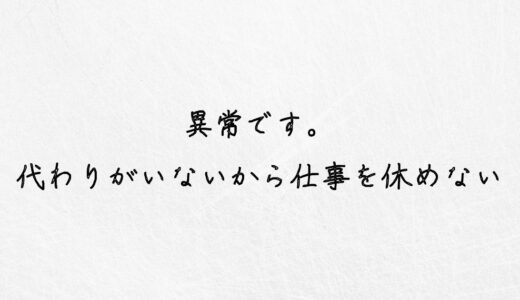 異常です。
代わりがいないから仕事を休めない